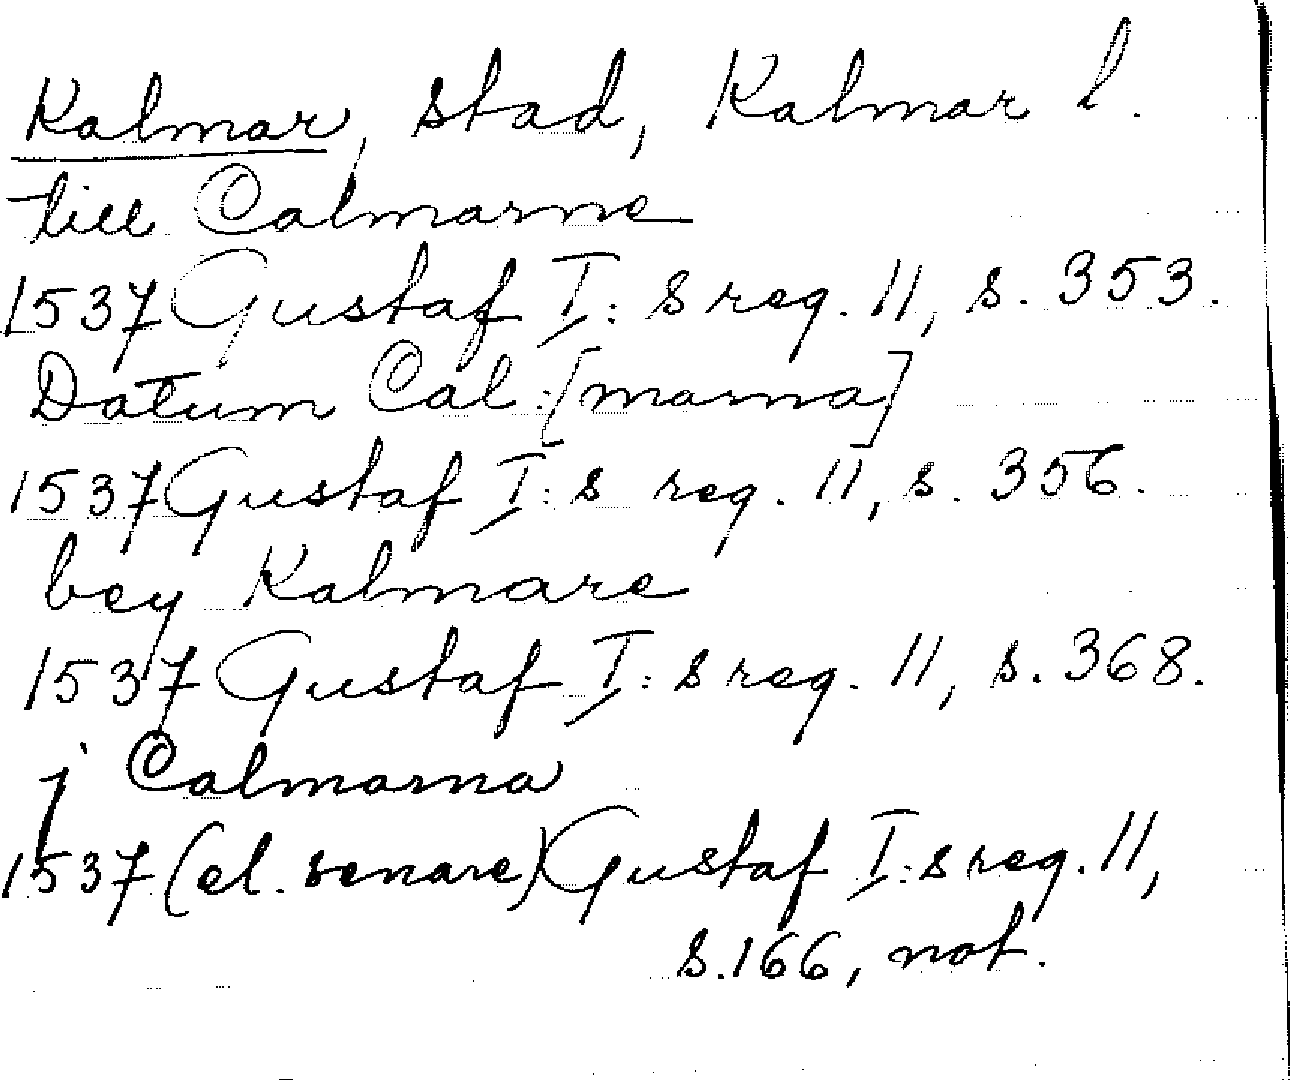 Kalmar, stad, Kalmar l.
till Calmarne
1537 Gustaf I:s reg. 11, s. 353.
Datum Cal:[marna]
1537 Gustaf I:s reg. 11, s. 356.
bey Kalmare
1537 Gustaf I:s reg. 11, s. 368.
j Calmarna
1537 (el. senare) Gustaf I:s reg. 11,
s. 166, not.